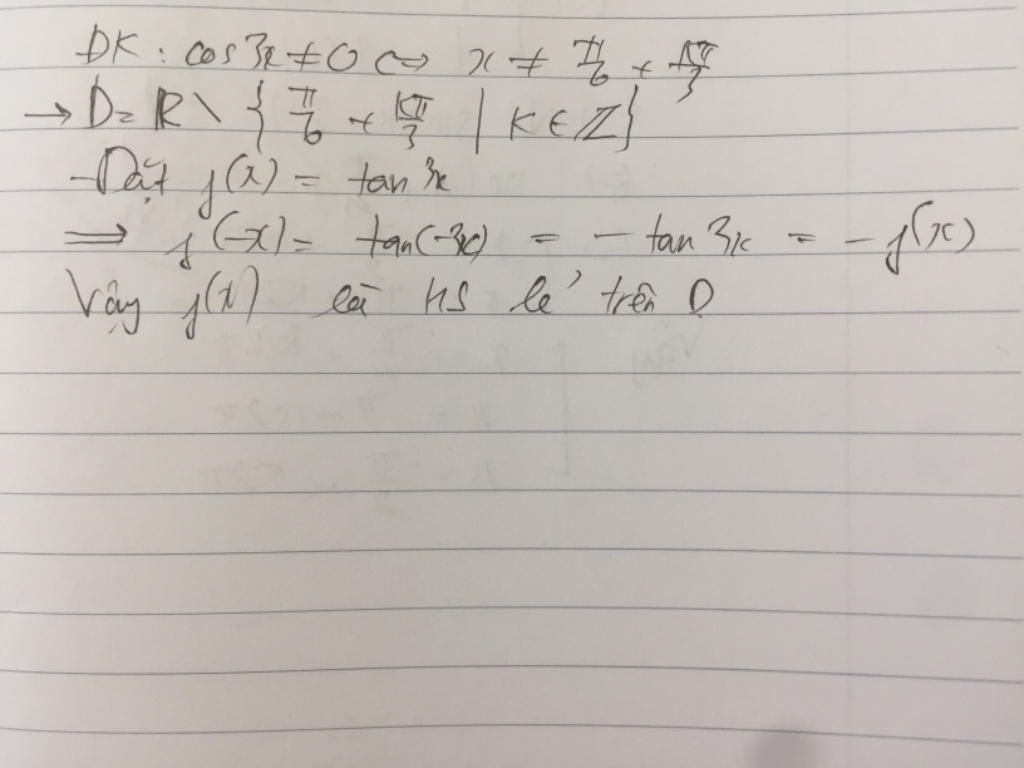 ĐK: cos3x ≠ 0 ⇔ x ≠ π/6 + kπ/3
→ D = R \ { π/6 + kπ/3 | K ∈ Z }
- Đặt f(x) = tan3x
⇒ f(-x) = tan(-3x) = - tan3x = - f(x)
Vậy f(x) là HS lẻ trên D